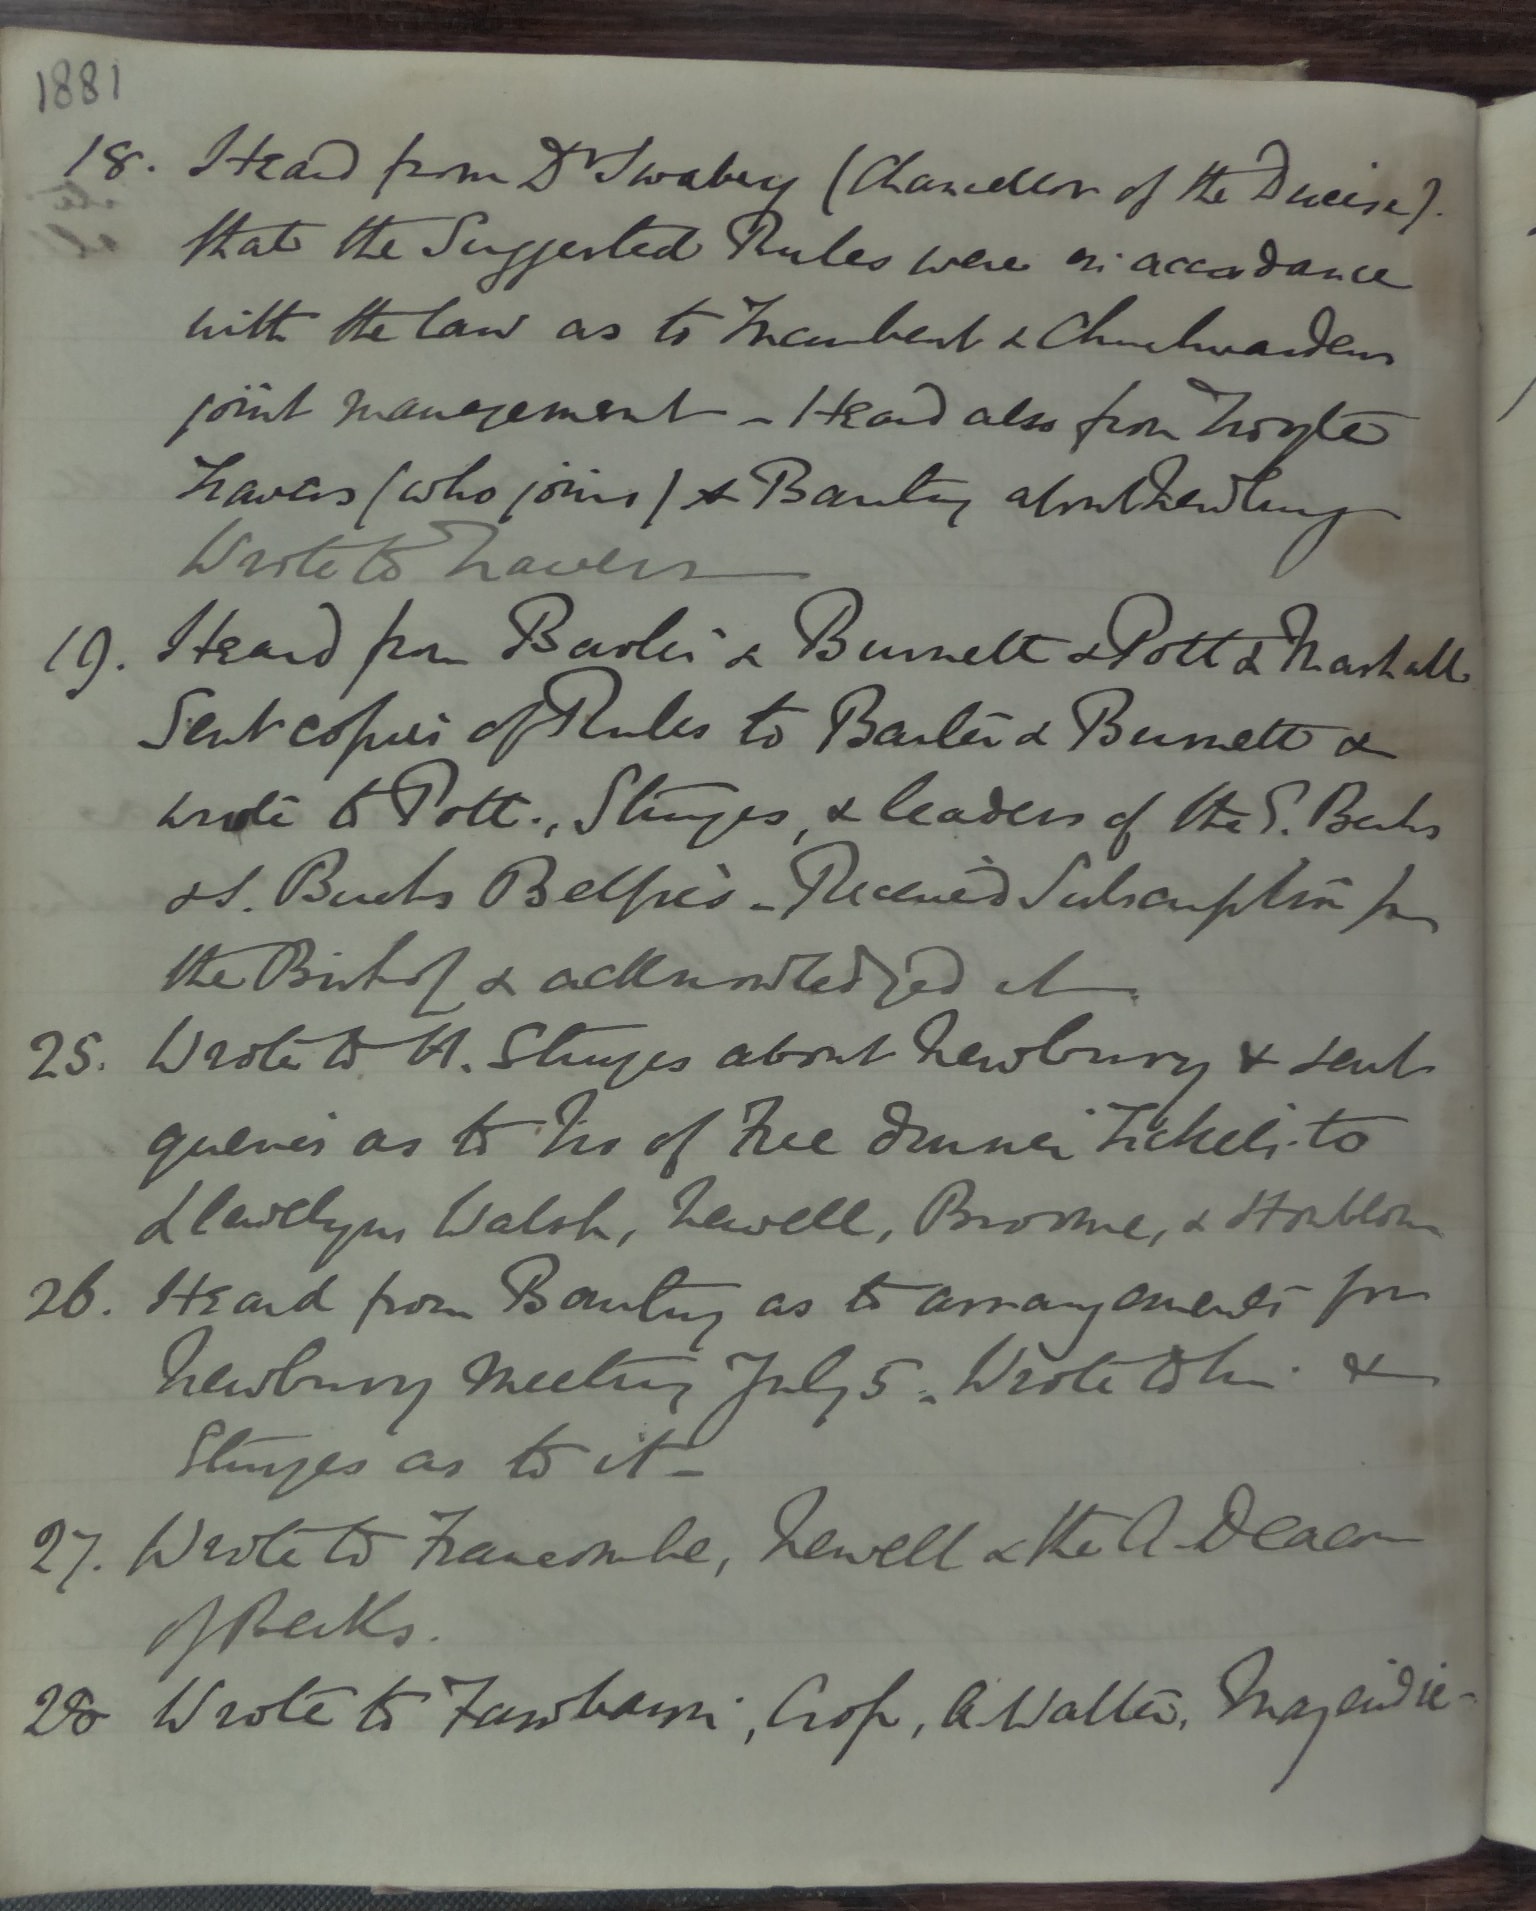 1881
18. Heard from Dr Swabey (Chancellor of the Diocese).
that the Suggested Rules were in accordance
with the law as to Incumbent & Churchwardens
joint management - Heard also from Troyte
Travers (who joins) & Bautry about
Wrote to Travers
19. Heard from Barter & Burnett & Pott & Marshall
Sent copies of Rules to Barter & Burnett &
wrote to Pott., Sturges, & leaders of the E. Berks
& S. Bucks Belfries - Received Subscription for
the Bishop & acknowledged it
25. Wrote to H. Sturges about Newbury & sent
queries as to No of Free dinner Tickets to
Llewellyn, Walsh, Newell, Broome, & Hornblow
26. Heard from Bautry as to arrangements for
Newbury Meeting July 5 - Wrote to him &
Sturges as to it -
27. Wrote to Francombe, Newell & the A-Deacon
of Berks.
28 Wrote to , Crop, A. Walter, Majendie -